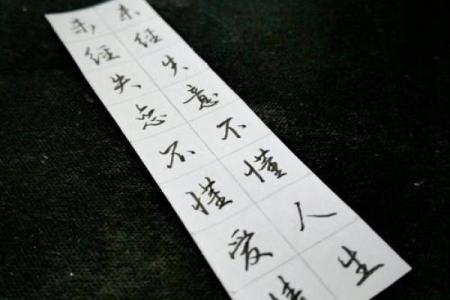 未经失恋不懂爱情
未经失意不懂人生